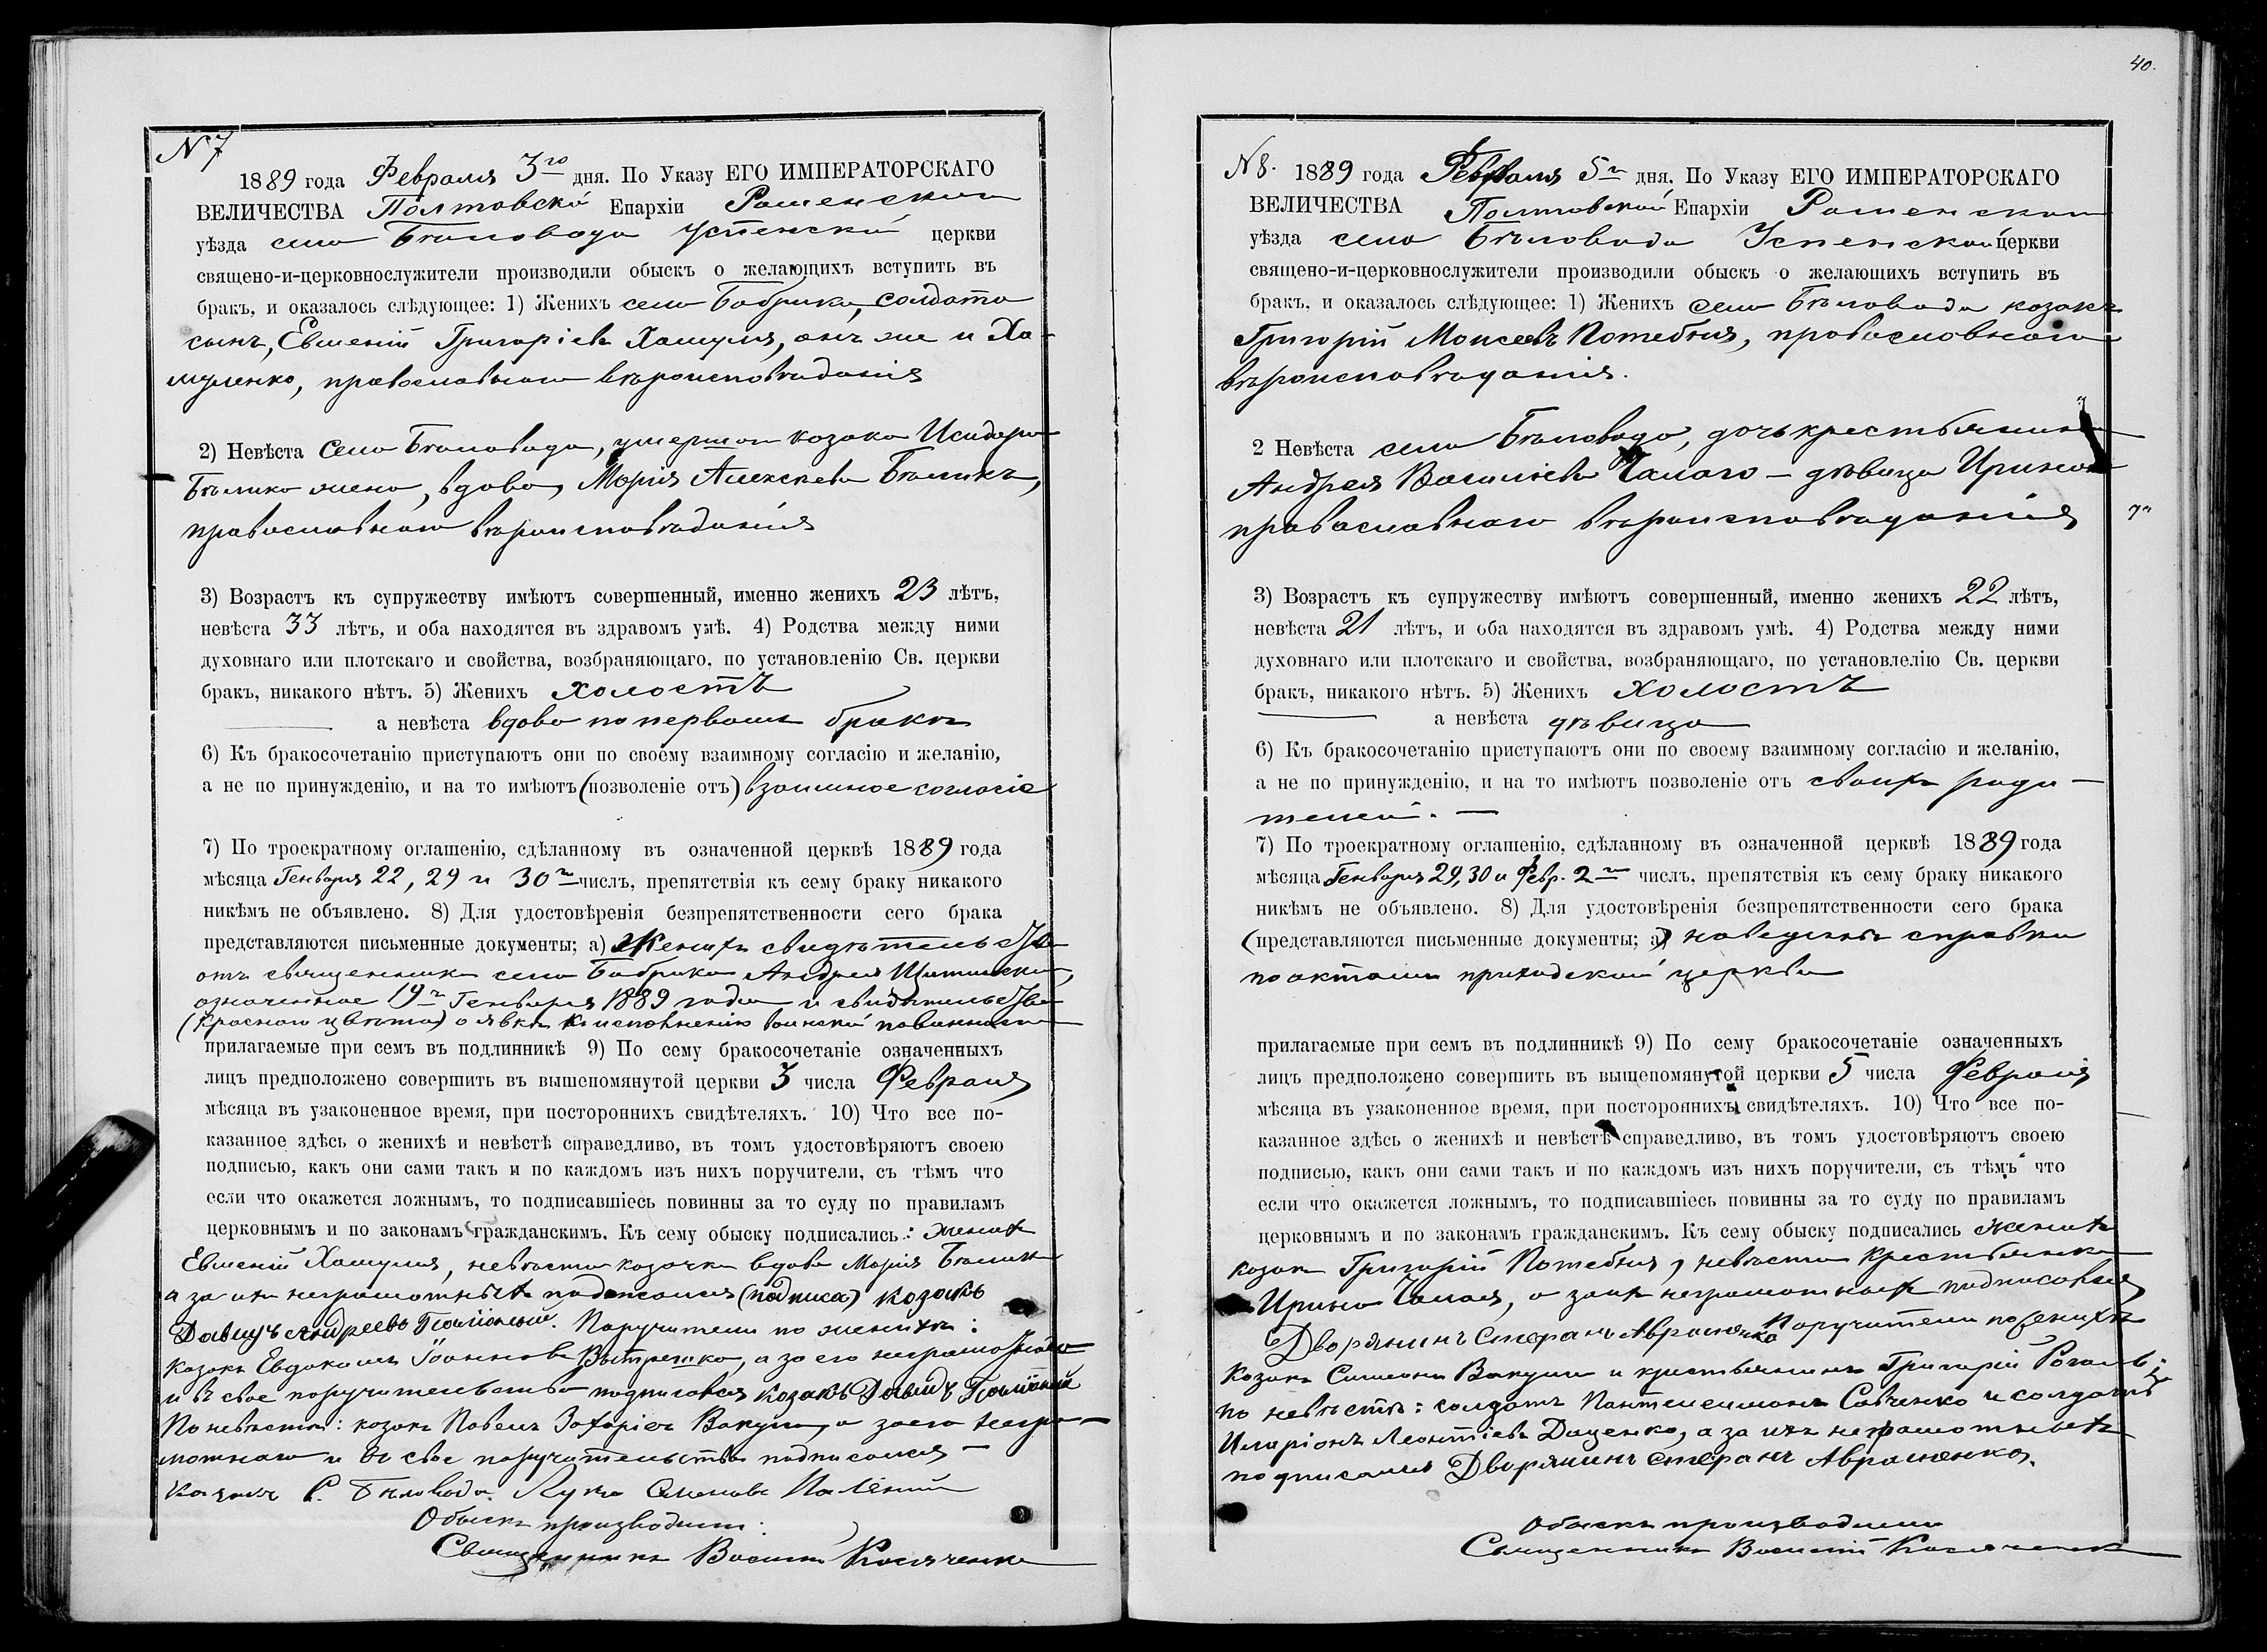 N 7
1889 года Февраля 3го дня. По Указу ЕГО ИМПЕРАТОРСКАГО
ВЕЛИЧЕСТВА Полтавской Епархіи Роменскаго
уѣзда села Бѣловода Успенской церкви
священо-и-церковнослужители производили обыскъ о желающихъ вступить въ
бракъ, и оказалось слѣдующее: 1) Женихъ села Бобрика, солдата
сынъ, Евменій Григоріевъ Хамуля, онъ же и Ха-
муленко, православнаго вѣроисповѣданія
2) Невѣста Села Бѣловода, умершаго козака Исидора
Бѣлика жена, вдова, Марія Алексѣева Бѣликъ,
православнаго вѣроисповѣданія
3) Возрастъ къ супружеству имѣютъ совершенный, именно женихъ 23 лѣтъ,
невѣста 33 лѣтъ, и оба находятся въ здравомъ умѣ. 4) Родства между ними
духовнаго или плотскаго и свойства, возбраняющаго, по установленію Св. церкви
бракъ, никакого нѣтъ. 5) Женихъ холостъ
а невѣста вдова по первомъ бракѣ
6) Къ бракосочетанію приступаютъ они по своему взаимному согласію и желанію,
а не по принужденію, и на то имѣютъ (позволеніе отъ) взаимное согласіе
7) По троекратному оглашенію, сдѣланному въ означенной церквѣ 1889 года
мѣсяца Генваря 22, 29 и 30го числъ, препятствія къ сему браку никакого
никѣмъ не объявлено. 8) Для удостовѣренія безпрепятственности сего брака
представляются письменные документы; а) Женихъ свидѣтельство
отъ священника села Бобрика Андрея
означенное 19го Генваря 1889 года и свидѣтельство
(Краснаго цвѣта) о явкѣ къ исполненію воинской повинности
прилагаемые при семъ въ подлинникѣ 9) По сему бракосочетаніе означенныхъ
лицъ предположено совершить въ вышепомянутой церкви 3 числа Февраля
мѣсяца въ узаконенное время, при постороннихъ свидѣтеляхъ. 10) Что все по-
казанное здѣсь о женихѣ и невѣстѣ справедливо, въ томъ удостовѣряютъ своею
подписью, какъ они сами такъ и по каждомъ изъ нихъ поручители, съ тѣмъ что
если что окажется ложнымъ, то подписавшіесь повинны за то суду по правиламъ
церковнымъ и по законамъ гражданскимъ. Къ сему обыску подписались: женихъ
Евменій Хамуля, невѣста козачка вдова Марія Бѣликъ
а за ихъ неграмотныхъ подписался (подписа) козакъ
Давидъ Андреевъ Поиръ женихѣ:
Козакъ Евдокимъ Іоанновъ Вытрешко, а за его неграмотнаго
и въ свое поручительство подписался козакъ Давидъ
По невѣстѣ: козакъ Павелъ Захаріевъ Вакула, а за его негра-
мотнаго и въ свое поручительство подписался
Козакъ С. Бѣловода Лука Семеновъ Палѣний
Обыскъ производилъ:
Священникъ Василій Косяченко
40.
N 8. 1889 года Февраля 5го дня. По Указу ЕГО ИМПЕРАТОРСКАГО
ВЕЛИЧЕСТВА Полтавской Епархіи Роменскаго
уѣзда села Бѣловода Успенской церкви
священо-и-церковнослужители производили обыскъ о желающихъ вступить въ
бракъ, и оказалось слѣдующее: 1) Женихъ села Бѣловода козакъ
Григорій Моисеевъ Потебня, православнаго
вѣроисповѣданія.
2 Невѣста села Бѣловода, дочь крестьянина
Андрея Васильева Чалаго – дѣвица Ирина
православнаго вѣроисповѣданія
3) Возрастъ къ супружеству имѣютъ совершенный, именно женихъ 22 лѣтъ,
невѣста 21 лѣтъ, и оба находятся въ здравомъ умѣ. 4) Родства между ними
духовнаго или плотскаго и свойства, возбраняющаго, по установлелію Св. церкви
бракъ, никакого нѣтъ. 5) Женихъ холостъ
а невѣста дѣвица
6) Къ бракосочетанію приступаютъ они по своему взаимному согласію и желанію,
а не по принужденію, и на то имѣютъ позволеніе отъ своихъ роди-
телей. –
7) По троекратному оглашенію, сдѣланному въ означенной церквѣ 1889 года
мѣсяца Генваря 29, 30 и Февр. 2го числъ, препятствія къ сему браку никакого
никѣмъ не объявлено. 8) Для удостовѣренія безпрепятственности сего брака
(представляются письменные документы; а) наведены справки
по актамъ приходской церкви
прилагаемые при семъ въ подлинникѣ 9) По сему бракосочетаніе означенныхъ
лицъ предположено совершить въ вышепомянутой церкви 5 числа Февраля
мѣсяца въ узаконенное время, при постороннихъ свидѣтеляхъ. 10) Что все по-
казанное здѣсь о женихѣ и невѣстѣ справедливо, въ томъ удостовѣряютъ своею
подписью, какъ они сами такъ и по каждомъ изъ нихъ поручители, съ тѣмъ что
если что окажется ложнымъ, то подписавшіесь повинны за то суду по правиламъ
церковнымъ и по законамъ гражданскимъ. Къ сему обыску подписались женихъ
козакъ Григорій Потебня, невѣста крестьянка
Ирина Чалая, а за ихъ неграмотныхъ подписовался
Дворянинъ Стефанъ Авраменко Поручители по женихѣ
козакъ Симеонъ Вакула и крестьянинъ Григорій Рогаль;
по невѣстѣ: солдатъ Пантелеимонъ Савченко и солдатъ
Иларіонъ Леонтіевъ Даценко, а за ихъ неграмотныхъ
подписался Дворянинъ Стефанъ Авраменко.
Обыскъ производилъ
Священникъ Василій Косяченко